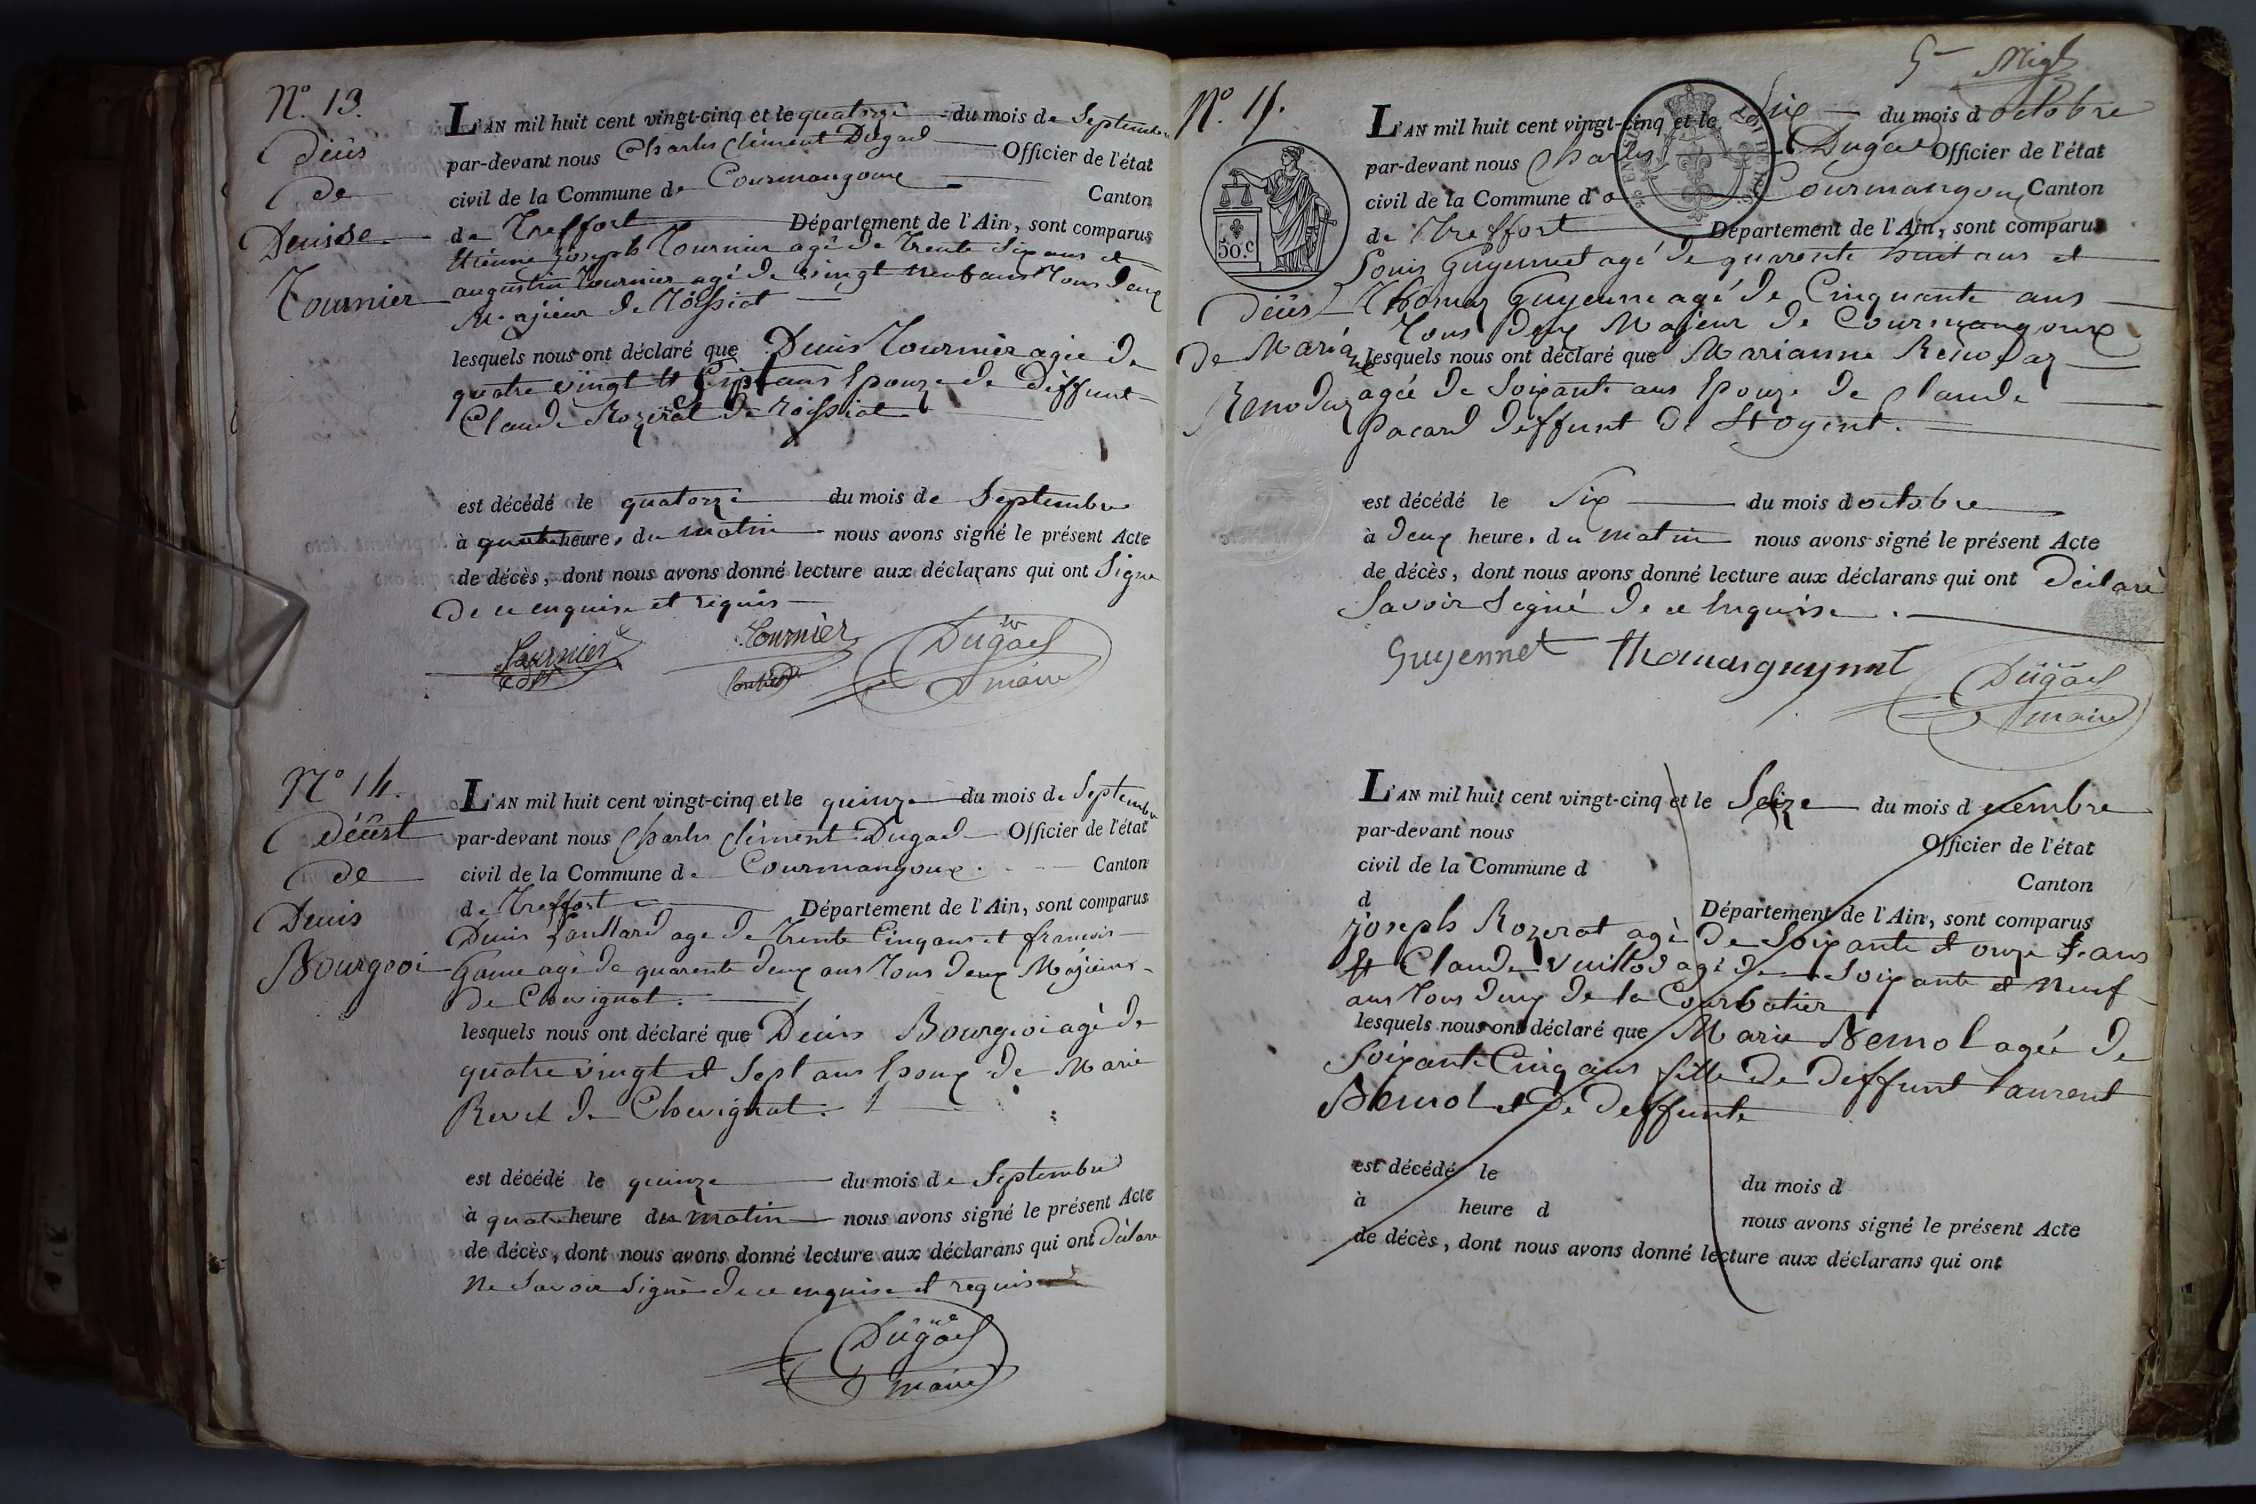 N.° 13.
Décès
de
Denise
Tournier
L'AN mil huit cent vingt-cinq et le quatorze du mois de Septembre
par-devant nous Charles Clément Dugad Officier de l'état
civil de la Commune de Courmangoux Canton
de Treffort Département de l'Ain, sont comparus
Etienne Joseph Tournier agé de Trente Six ans et
augustin Tournier agé de vingt neuf ans Tous deux
Majieur de Roissiat
lesquels nous ont déclaré que Denis Tournier agée de
quatre vingt et Sept ans Epouze de deffunt
Claude Rozerat de roissiat
est décédé le quatorze du mois de Septembre
à quatre heure, du matin nous avons signé le présent Acte
de décès, dont nous avons donné lecture aux déclarans qui ont Signe
de ce enquise et requis
Tournier
Tournier
Dugad
maire
N° 14.
Décest
de
Denis
Bourgeoi
L'AN mil huit cent vingt-cinq et le quinze du mois de Septembre
par-devant nous Charles Clément Dugad Officier de l'état
civil de la Commune de Courmangoux. Canton
de Treffort Département de l'Ain, sont comparus
Denis age de Trente Cinq ans et francois
Game agé de quarente deux ans Tous deux Majieur
de Chevignat.
lesquels nous ont déclaré que Denis Bourgeoi agé de
quatre vingt et Sept ans Epoux de Marie
Revel de Chevignat.
est décédé le quinze du mois de Septembre
à quatre heure du matin nous avons signé le présent Acte
de décès, dont nous avons donné lecture aux déclarans qui ont Déclare
Ne Savoir Signé de ce enquise et requis
Dugad
maire
5
N.° 15.
50.c
Décès
de Marian
Renodaz
L'AN mil huit cent vingt-cinq et le Six du mois d octobre
par-devant nous Charles Dugad Officier de l'état
civil de la Commune d e Courmangoux Canton
de Treffort Département de l'Ain, sont comparus
Louis Guyennet agé de quarente huit ans et
Thomas Guyenne agé de Cinquante ans
Tous deux Majeur de Courmangoux
lesquels nous ont déclaré que Marianne Renodaz
agée de Soixante ans Epouze de Claude
Pacard deffunt de
est décédé le Six du mois d octobre
à deux heure, du matin nous avons signé le présent Acte
de décès, dont nous avons donné lecture aux déclarans qui ont Déclaré
Savoir Signé de ce Enquise.
Guyennet
Thomas guyennet
Dugad
maire
L'AN mil huit cent vingt-cinq et le Seize du mois d
par-devant nous Officier de l'état
civil de la Commune d Canton
d Département de l'Ain, sont comparus
joseph Rozerat agé de Soixante et onze ans
et Claude Vuillod agé de Soixante et Neuf
ans Tous deux de la Courbatier
lesquels nous ont déclaré que Marie Bemol agée de
Soixante Cinq ans fille de deffunt laurent
Bemol et de deffunte
est décédé le du mois d
à heure d nous avons signé le présent Acte
de décès, dont nous avons donné lecture aux déclarans qui ont